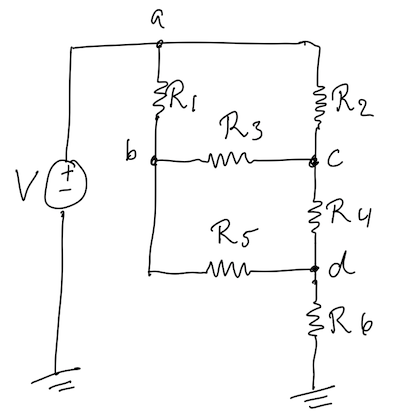 a
R1
R2
R3
b
c
V
+
−
R4
R5
d
R6